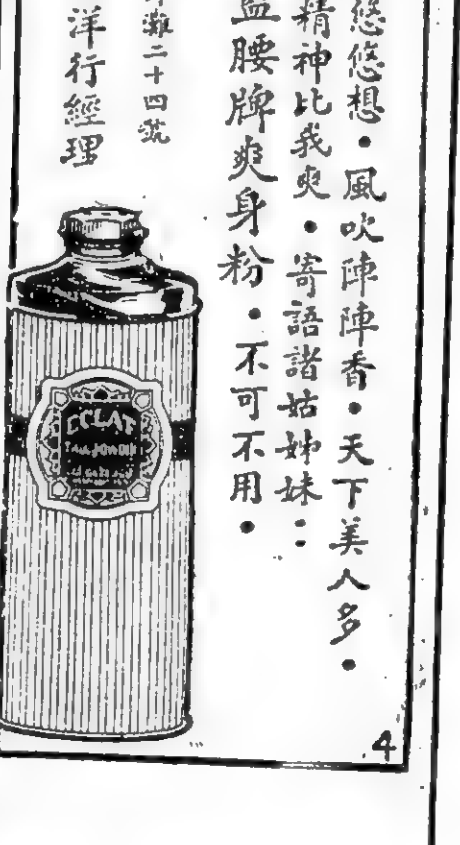 悠悠想．風吹陣陣香．天下美人多．
精神比我爽．寄語諸姑姊妹：
腰牌爽身粉．不可不用．
灘二十四號
洋行經理
ECLAT
4